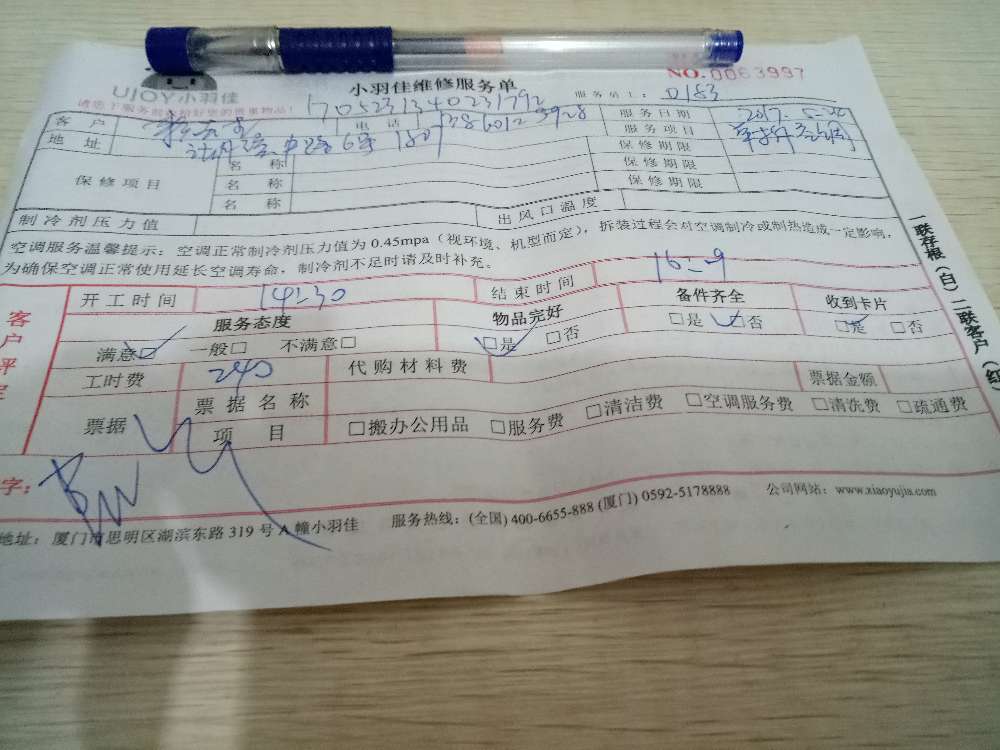 UJOY小羽佳
小羽佳维修服务单
NO.0063997
1705231340231792
服务员工：D183
客户
电话
服务日期 2017.5
地址
6号
服务项目
保修项目
名称
名称
名称
保修期限
保修期限
保修期限
制冷剂压力值
出风口温度
空调服务温馨提示：空调正常制冷剂压力值为 0.45mpa（视环境、机型而定），拆装过程会对空调制冷或制热造成一定影响，
为确保空调正常使用延长空调寿命，制冷剂不足时请及时补充。
开工时间 14:30
结束时间
客户评定
服务态度
物品完好
备件齐全
收到卡片
满意□ 一般□ 不满意□
□是 □否
□是 □否
□是 □否
工时费 240
代购材料费
票据金额
票据
票据名称
项目 □搬办公用品 □服务费 □清洁费 □空调服务费 □清洗费 □疏通费
字：
地址：厦门市思明区湖滨东路 319 号 A 幢小羽佳
服务热线：(全国) 400-6655-888 (厦门) 0592-5178888
公司网站：www.xiaoyujia.com
一联存根（白）二联客户（红